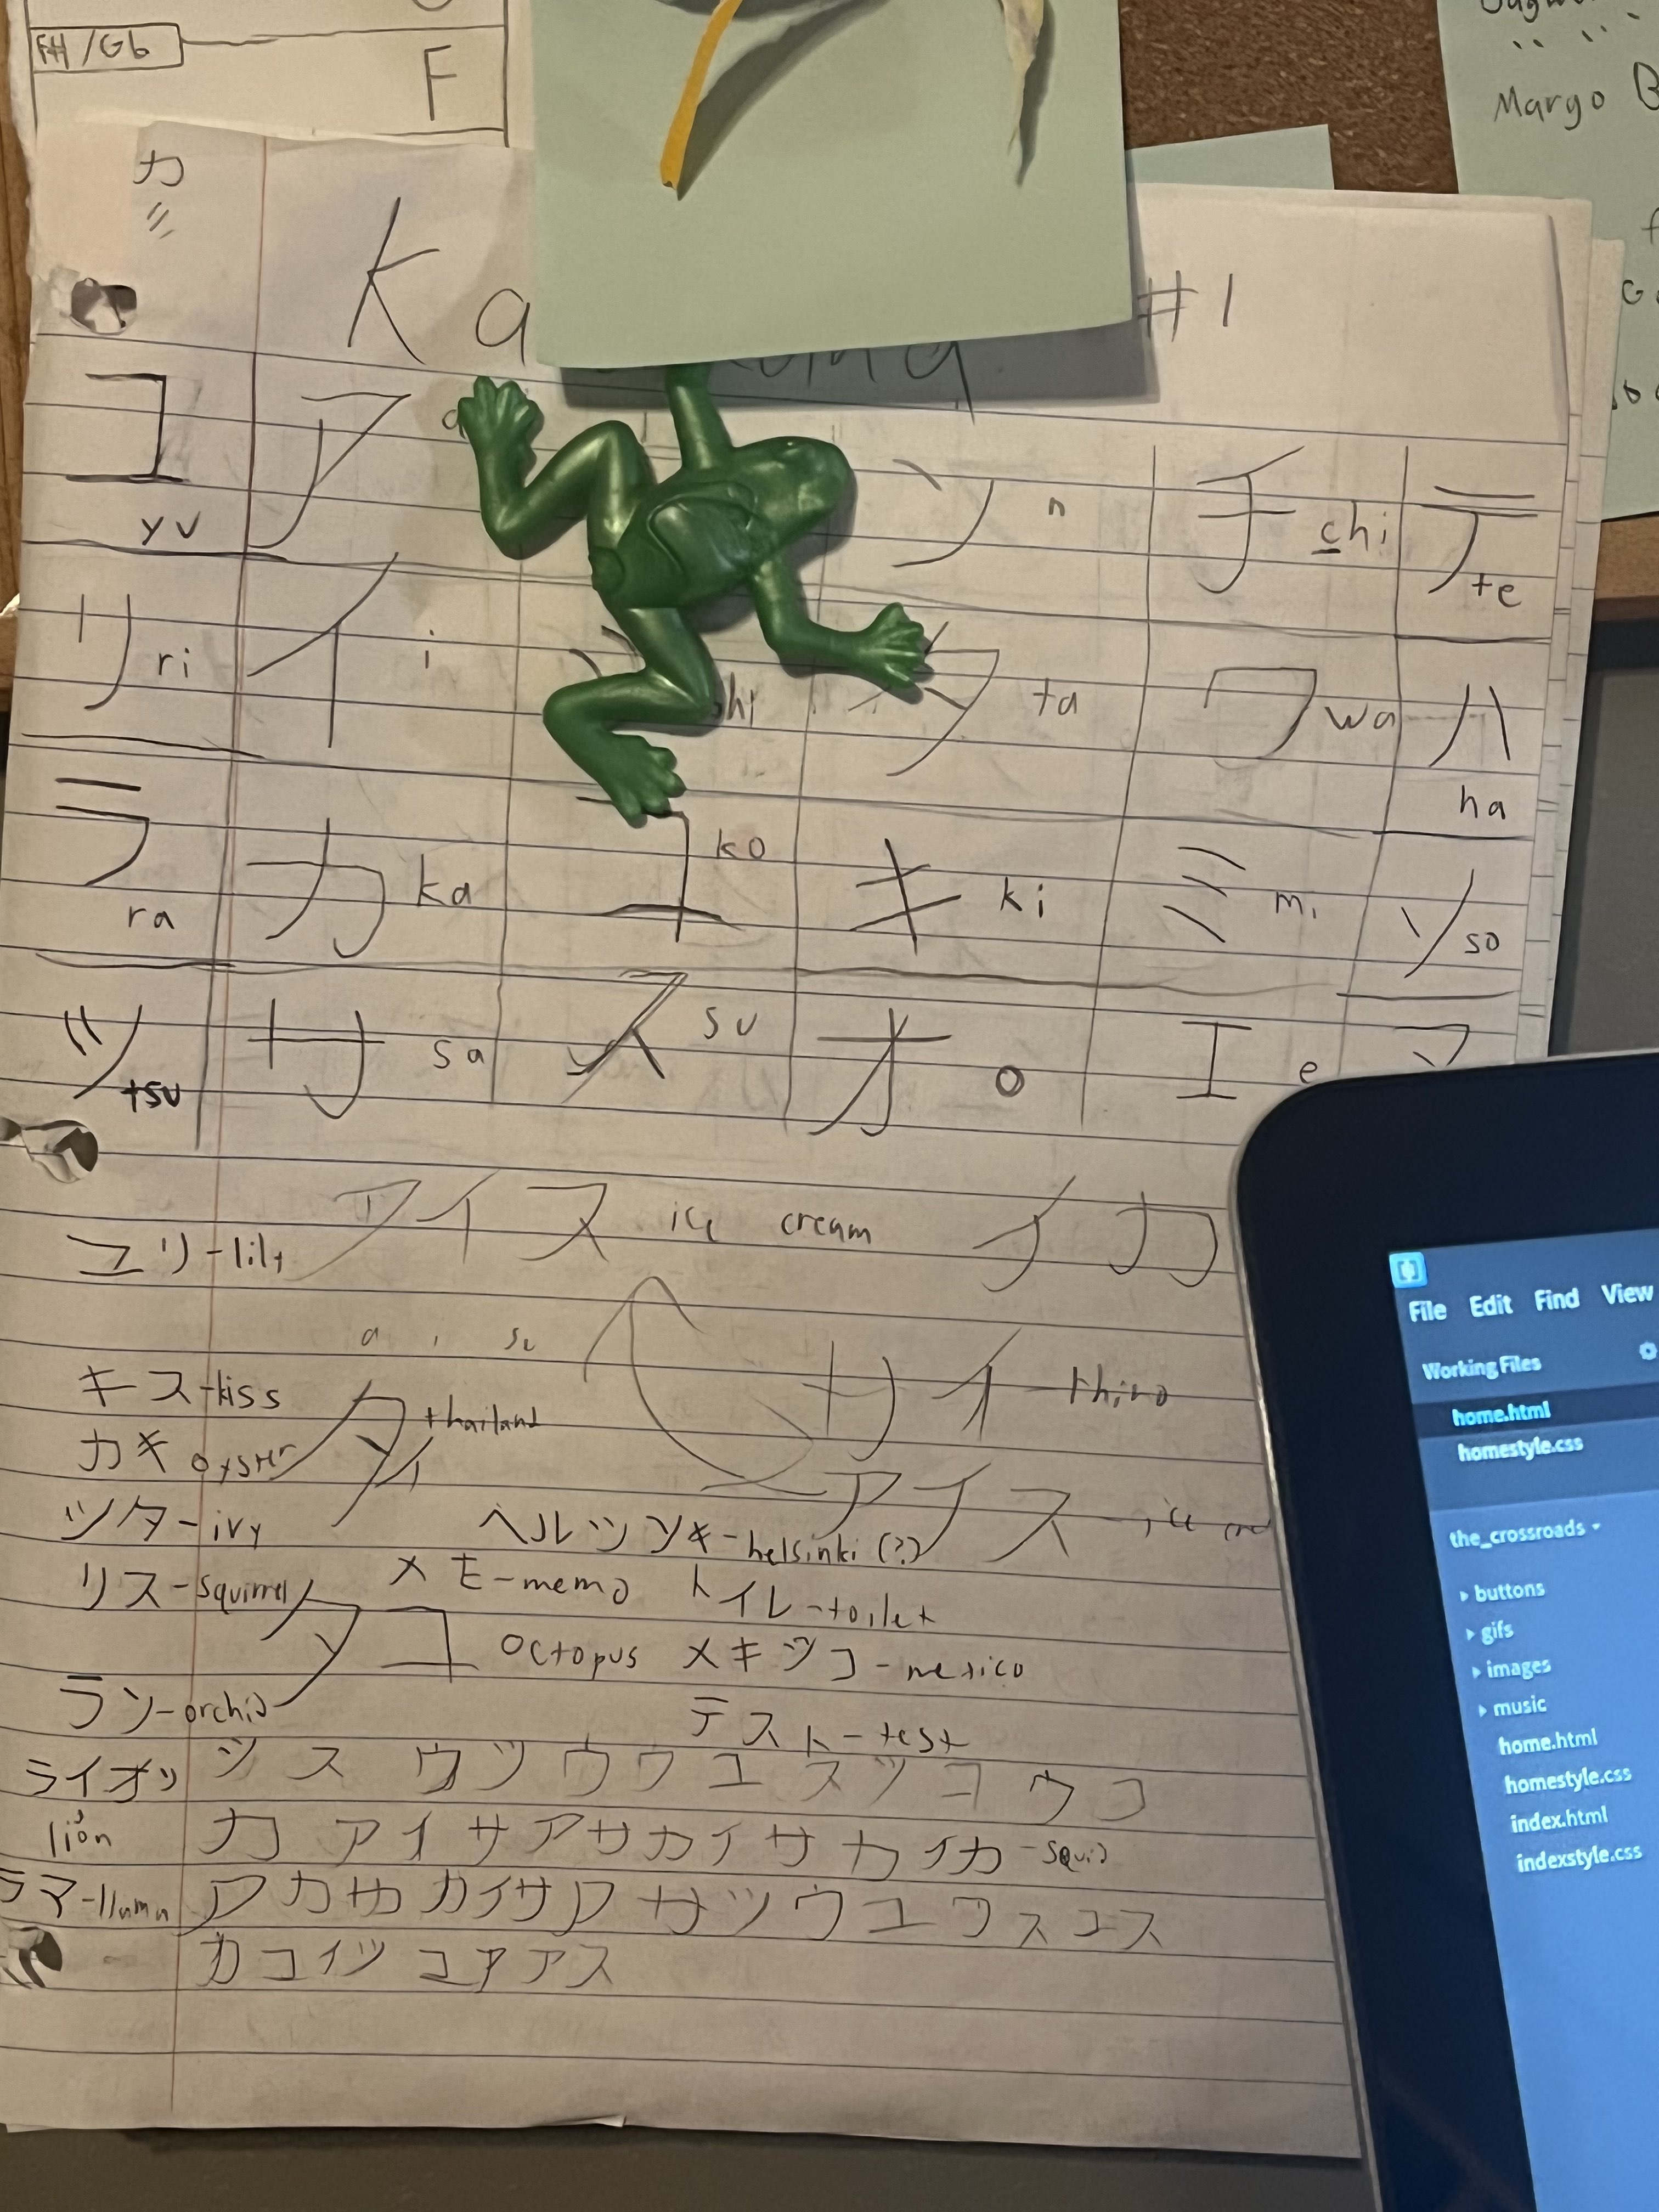 F#/Gb
F
Margo
カ
Ka
#1
ユ yu ア ン n チ chi テ te
リ ri イ i shi タ ta ワ wa ハ ha
ラ ra カ ka コ ko キ ki ミ mi ソ so
ツ tsu サ sa ス su オ o エ e マ
アイス ice cream イカ
ユリ-lily
a i su
サイ-rhino
キス-kiss
タイ thailand
カキ oyster
アイス-ice
ツタ-ivy
ヘルツンキ-helsinki(?)
リス-squirrel
メモ-memo トイレ-toilet
タコ octopus メキツコ-mexico
ラン-orchid
テスト-test
ライオン
lion
ツス ウツウウユスツコウコ
カアイサアサカイサカイカ-squid
ラマ-llama
アカサカイサアサツウユワスコス
カコイツ コアアス
File Edit Find View
Working Files
home.html
homestyle.css
the_crossroads
buttons
gifs
images
music
home.html
homestyle.css
index.html
indexstyle.css